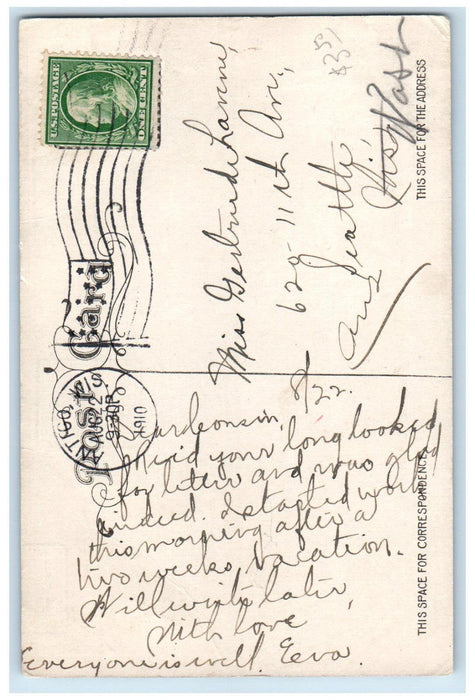 U.S. POSTAGE
ONE CENT
Post Card
ANTIGO, WIS
AUG 22
9-30P
1910
Miss Gertrude Lavine,
629-11th Ave,
Seattle
Wash
THIS SPACE FOR THE ADDRESS
8/22.
Dear Cousin,
Rec'd your long looked
for letter and was glad
indeed. I started work
this morning after a
two weeks, vacation.
Will write later,
With love
Everyone is well. Eva.
THIS SPACE FOR CORRESPONDENCE